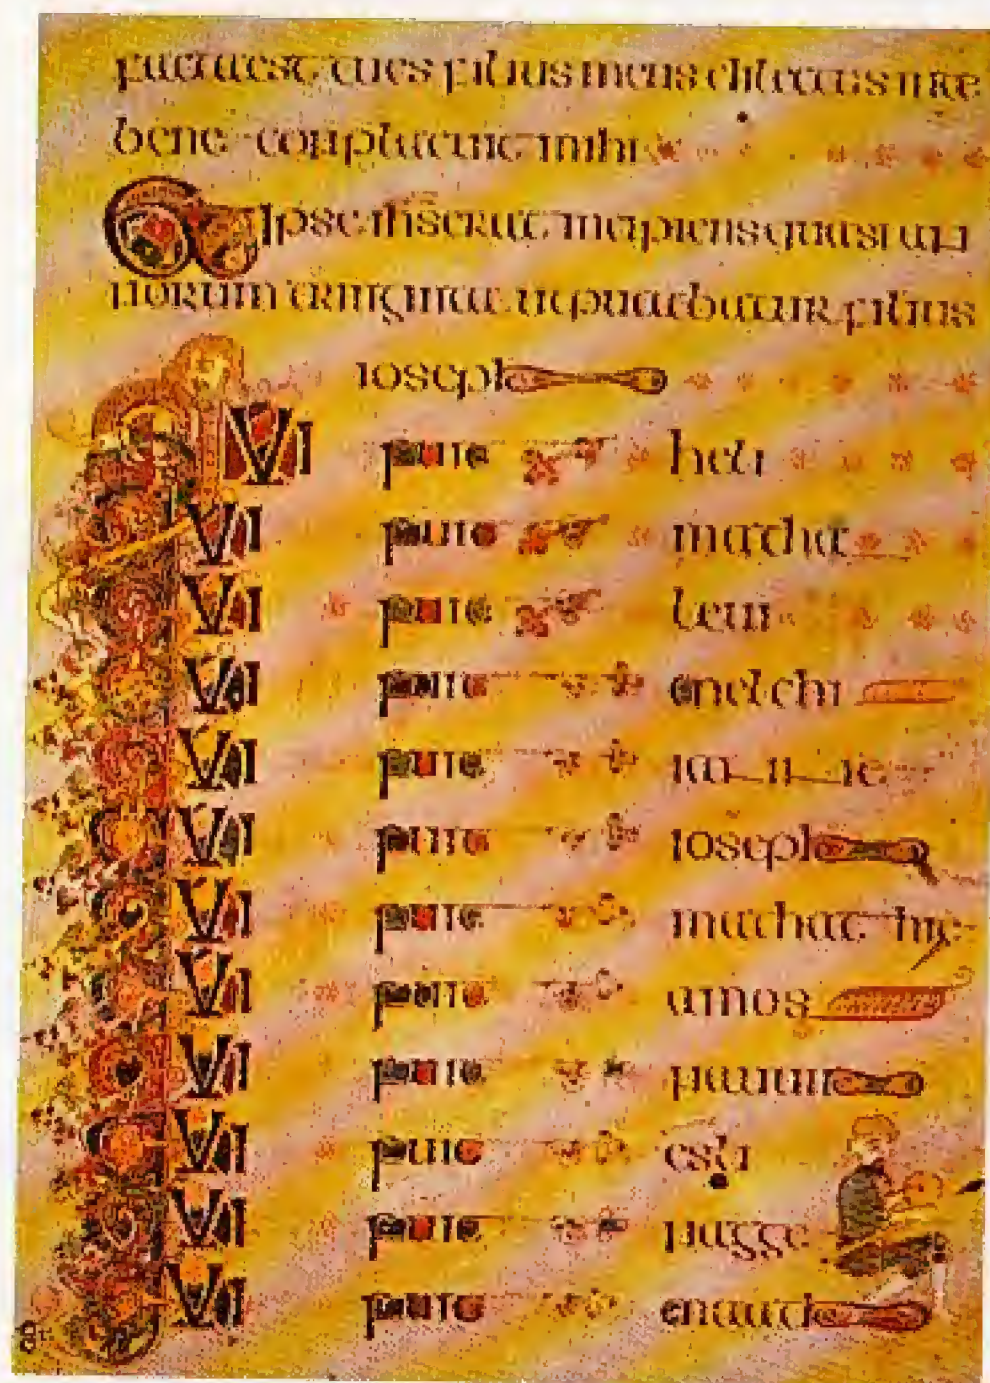 facta est tu es filius meus dilectus in te
bene conplacuit mihi
Et ipse ihs erat incipiens quasi an
norum triginta ut putabatur filius
ioseph
VI fuit heli
VI fuit mathat
VI fuit levi
VI fuit melchi
VI fuit iannae
VI fuit ioseph
VI fuit mathathie
VI fuit amos
VI fuit nauum
VI fuit esli
VI fuit nagge
VI fuit